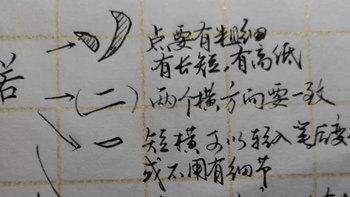 点要有粗细
有长短,有高低
若
(二) 两个横方向要一致
短横可以轻入笔后重
或不用有细节